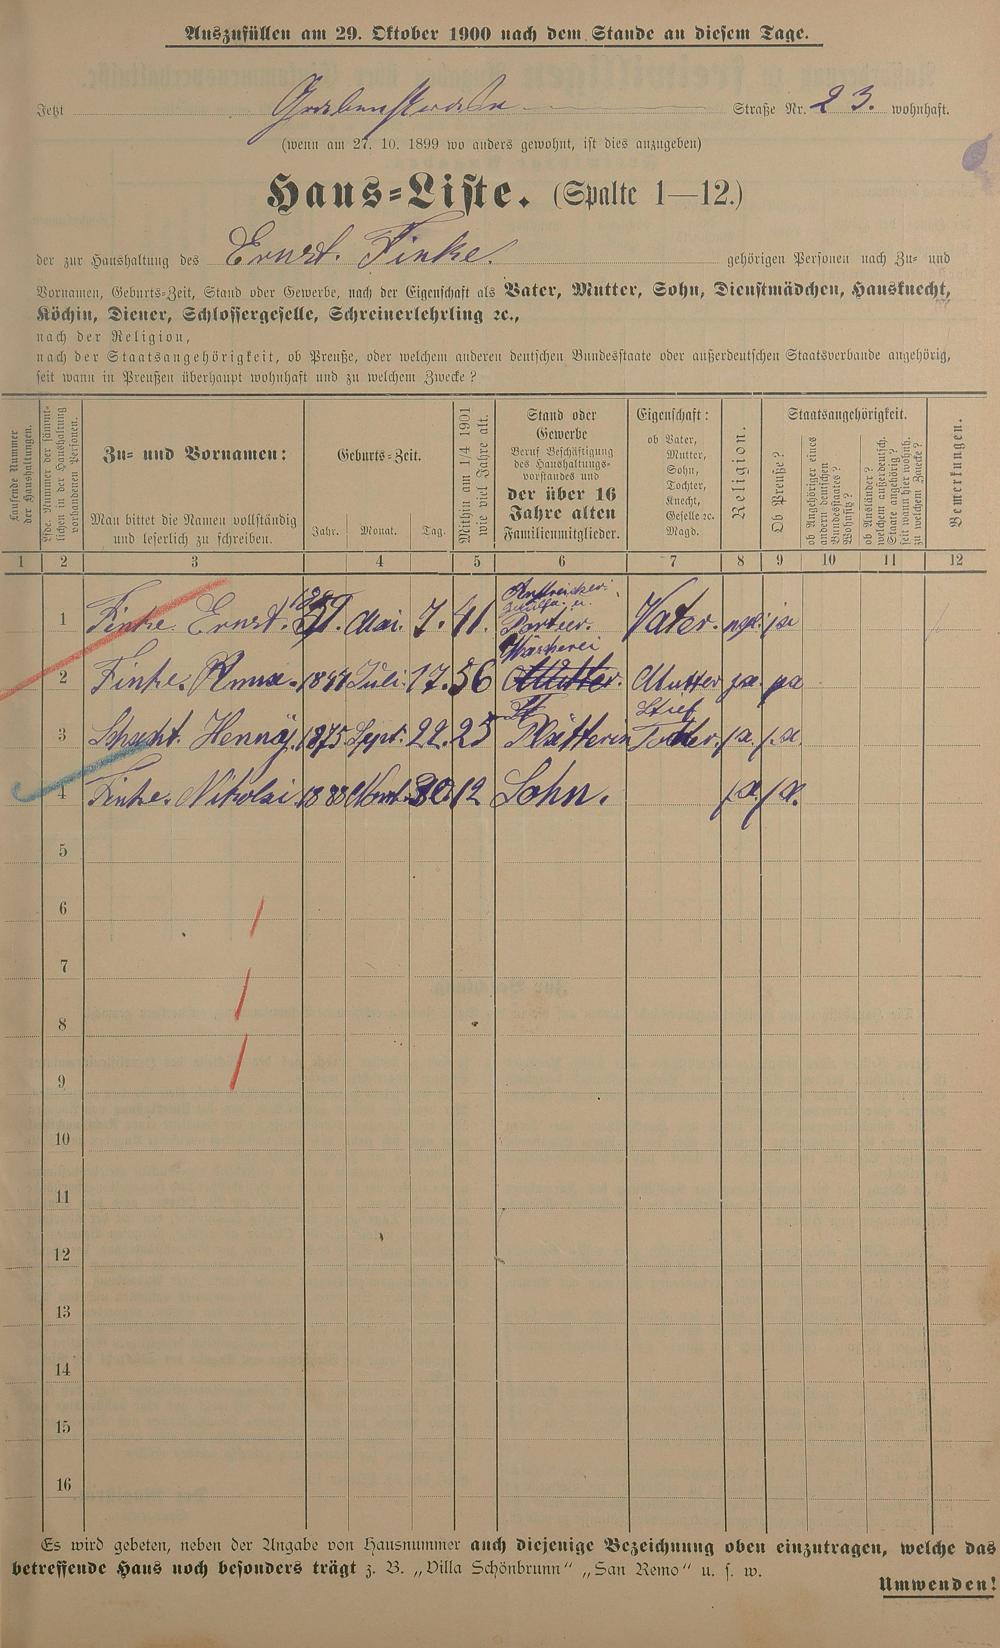 Auszufüllen am 29. Oktober 1900 nach dem Stande an diesem Tage.
Jetzt Grabenstraße Straße Nr. 23. wohnhaft.
(wenn am 27. 10. 1899 wo anders gewohnt, ist dies anzugeben)
Haus-Liste. (Spalte 1—12.)
der zur Haushaltung des Ernst. Finke. gehörigen Personen nach Zu- und
Vornamen, Geburts-Zeit, Stand oder Gewerbe, nach der Eigenschaft als Vater, Mutter, Sohn, Dienstmädchen, Hausknecht,
Köchin, Diener, Schlossergeselle, Schreinerlehrling ꝛc.,
nach der Religion,
nach der Staatsangehörigkeit, ob Preuße, oder welchem anderen deutschen Bundesstaate oder außerdeutschen Staatsverbande angehörig,
seit wann in Preußen überhaupt wohnhaft und zu welchem Zwecke?
Laufende Nummer
der Haushaltungen.
Lfde. Nummer der sämmt-
lichen in der Haushaltung
vorhandenen Personen.
Zu- und Vornamen:
Man bittet die Namen vollständig
und leserlich zu schreiben.
Geburts-Zeit.
Jahr. Monat. Tag.
Mithin am 1/4 1901
wie viel Jahre alt.
Stand oder
Gewerbe
Beruf Beschäftigung
des Haushaltungs-
vorstandes und
der über 16
Jahre alten
Familienmitglieder.
Eigenschaft:
ob Vater,
Mutter,
Sohn,
Tochter,
Knecht,
Geselle ꝛc.
Magd.
Religion.
Staatsangehörigkeit.
Ob Preuße?
ob Angehöriger eines
andern deutschen
Bundesstaates?
Wohnsitz?
ob Ausländer?
welchem außerdeutsch.
Staate angehörig?
seit wann hier wohnh.
zu welchem Zwecke?
Bemerkungen.
1 2 3 4 5 6 7 8 9 10 11 12
1 Finke. Ernst. 59. Mai. 7. 41. Anstreicher- Portier. Vater. ja
2 Finke. Anna. 1844 Juli. 17. 56 Wäscherei Mutter. Mutter ja. ja
3 Schucht. Henny. 1875 Sept. 22. 25 Plätterin Stief Tochter. ja. ja.
4 Finke. Nikolai 1888 Novb. 30. 12 Sohn. ja. ja.
5
6
7
8
9
10
11
12
13
14
15
16
Es wird gebeten, neben der Angabe von Hausnummer auch diejenige Bezeichnung oben einzutragen, welche das
betreffende Haus noch besonders trägt z. B. „Villa Schönbrunn“ „San Remo“ u. s. w.
Umwenden!